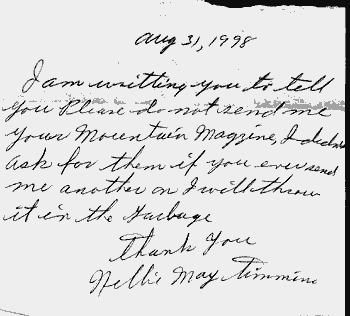 Aug 31, 1998
I am writting you to tell
you Please do not send me
your Mountain Magzine, I didn
ask for them if you ever send
me another on I will throw
it in the Garbage
Thank You
Nellie May Timmins